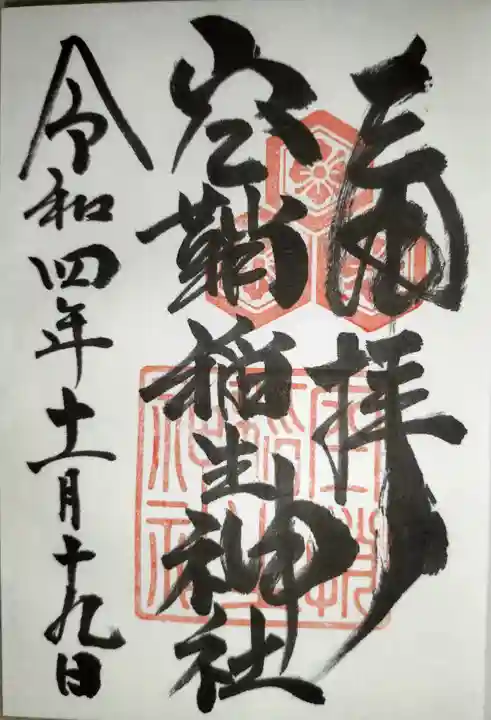 奉拝
空鞘稲生神社
令和四年十一月十九日